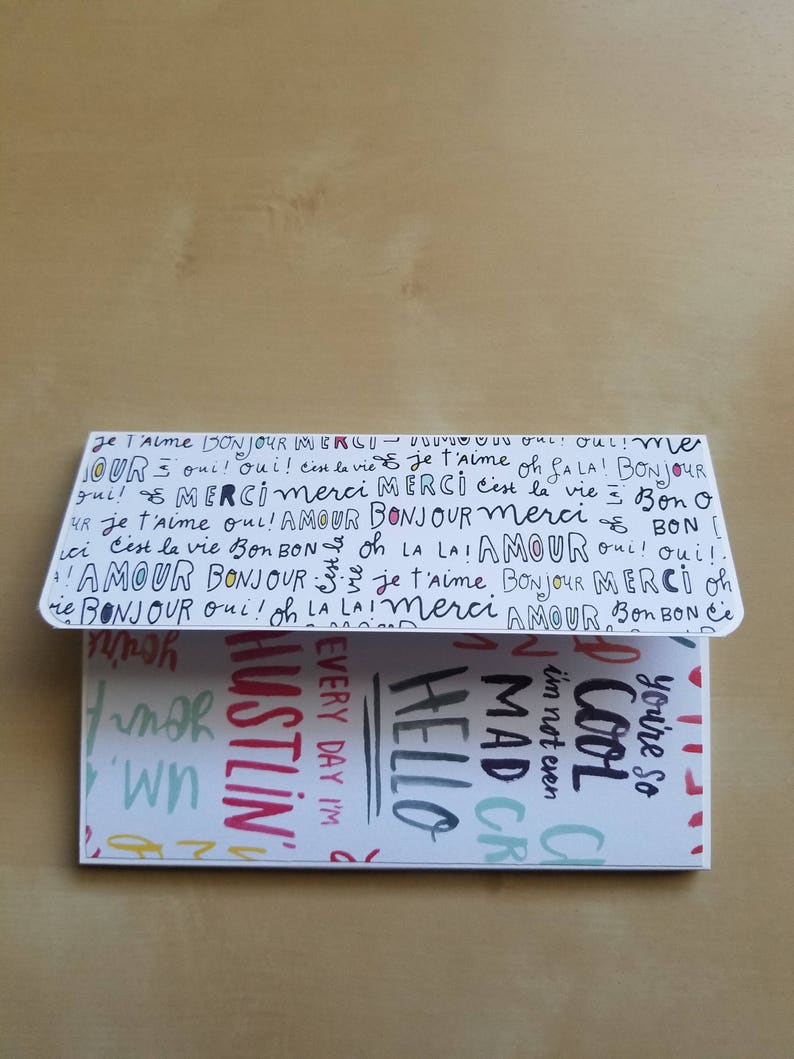 je T'Aime BONJOUR MERCI AMOUR oui! oui! me
OUR oui! oui! c'est la vie je t'aime oh LA LA! BONJOUR
oui! MERCI merci MERCI c'est la vie Bon
je t'aime oui! AMOUR BONJOUR merci BON
ci c'est la vie Bon BON c'est la vie oh LA LA! AMOUR oui! oui!
! AMOUR BONJOUR je t'aime BONJOUR MERCI oh
vie BONJOUR oui! oh LA LA! merci AMOUR Bon BON c'e
you're so
COOL
i'm not even
MAD
CR
HELLO
EVERY DAY I'M
HUSTLIN'
your
UM.
you're